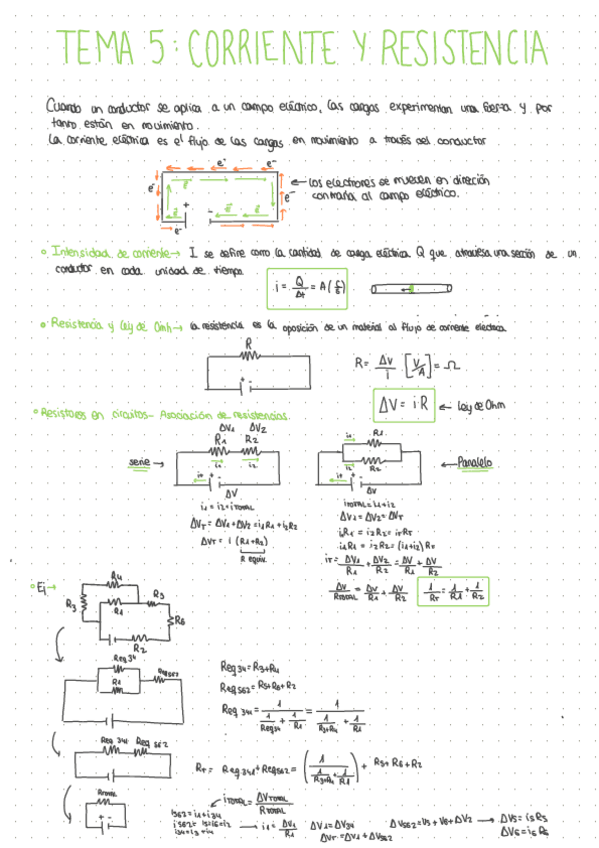 TEMA 5: CORRIENTE Y RESISTENCIA
Cuando un conductor se aplica a un campo eléctrico, las cargas experimentan una fuerza y por
tanto están en movimiento.
La corriente eléctrica es el flujo de las cargas en movimiento a través del conductor
e⁻ e⁻
e⁻ ← Los electrones se mueven en dirección
contraria al campo eléctrico.
+ -
e⁻
e⁻
Intensidad de corriente → I se define como la cantidad de carga eléctrica Q que atraviesa una sección de un
conductor en cada unidad de tiempo.
i = Q/Δt = A (C/s)
Resistencia y Ley de Omh → la resistencia es la oposición de un material al flujo de corriente eléctrica
R
R = ΔV/i [V/A] = Ω
ΔV = iR ← Ley de Ohm
Resistores en circuitos - Asociación de resistencias.
ΔV1 ΔV2
R1 R2
i1 i2
serie →
ΔV
R1
i1
i2 R2
← Paralelo
ΔV
i1 = i2 = iTOTAL
ΔVT = ΔV1 + ΔV2 = i1R1 + i2R2
ΔVT = i (R1+R2)
R equiv.
iTOTAL = i1+i2
ΔV1 = ΔV2 = ΔVT
i1R1 = i2R2 = iTRT
i1R1 = i2R2 = (i1+i2) RT
iT = ΔV1/R1 + ΔV2/R2 = ΔV/R1 + ΔV/R2
ΔV/RTOTAL = ΔV/R1 + ΔV/R2
1/RT = 1/R1 + 1/R2
Ej →
R4
R3 R1 R5
R6
R2
Req34
R1 Req562
Req34 = R3+R4
Req562 = R5+R6+R2
Req 341 = 1/(1/Req34 + 1/R1) = 1/(1/(R3+R4) + 1/R1)
Req 341 Req 562
RT = Req341 + Req562 = (1/(1/(R3+R4) + 1/R1)) + R5+R6+R2
RTOTAL
iTOTAL = ΔVTOTAL/RTOTAL
i562 = i1+i34
i562 = i5=i6=i2
i34 = i3 = i4
→ i1 = ΔV1/R1
ΔV1 = ΔV34
ΔVT = ΔV1 + ΔV562
ΔV562 = V5 + V6 + ΔV2 → ΔV5 = i5R5
ΔV6 = i6R6